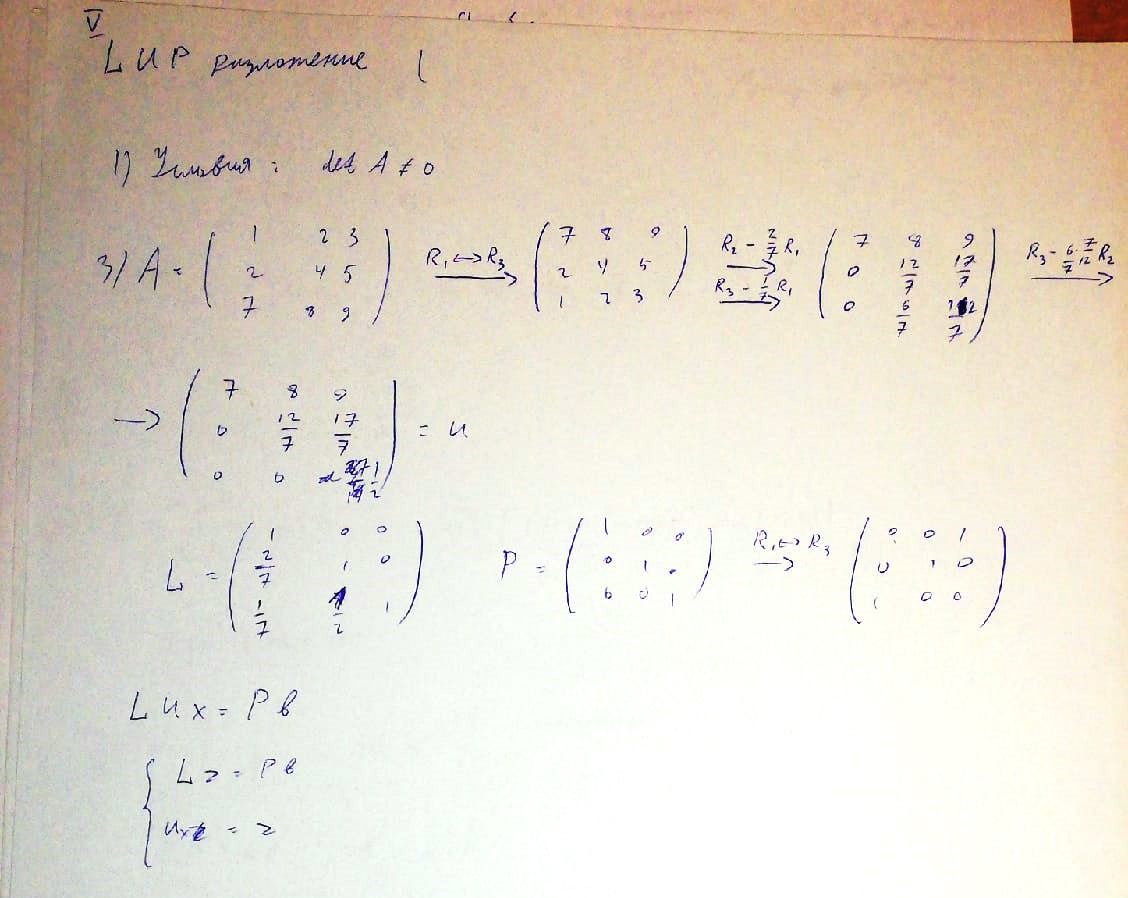 V
LUP разложение (
1) Условия: det A ≠ 0
3) A = ( 1 2 3 ; 2 4 5 ; 7 8 9 ) R₁↔R₃ → ( 7 8 9 ; 2 4 5 ; 1 2 3 ) R₂ - 2/7 R₁ → R₃ - 1/7 R₁ → ( 7 8 9 ; 0 12/7 17/7 ; 0 6/7 12/7 ) R₃ - 6/7·7/12 R₂ →
→ ( 7 8 9 ; 0 12/7 17/7 ; 0 0 1/2 ) = U
L = ( 1 0 0 ; 2/7 1 0 ; 1/7 1/2 1 ) P = ( 1 0 0 ; 0 1 0 ; 0 0 1 ) R₁↔R₃ → ( 0 0 1 ; 0 1 0 ; 1 0 0 )
LUx = Pb
{ Lz = Pb
Ux = z